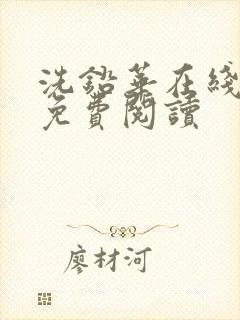 洗鉛華在綫
免費閱讀
廖材河